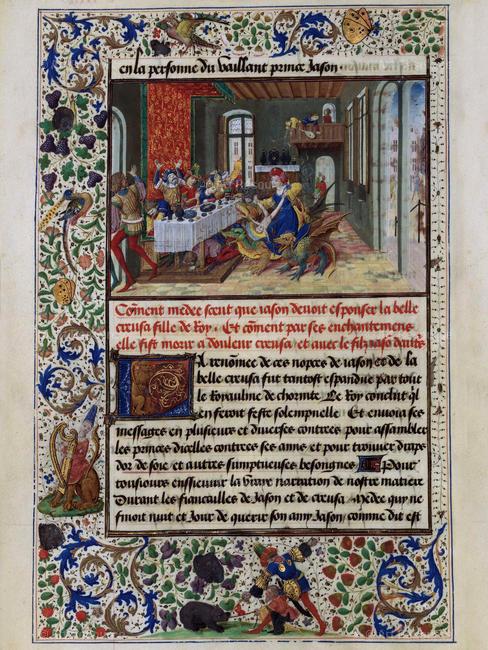 en la personne du vaillant prince Jason
Coment medee sceut que iason deuoit esponser la belle
creusa fille de Roy. Et coment par ses enchantemens
elle fist morir a douleur creusa et auec le filz iaso
La renomee de ces nopces de iason et de la
belle creusa fut tantost espandue par tout
le Royaulme de chorinte Le Roy conclut ql
en feroit feste solempnelle Et enuoia ses
messages en plusieurs et diuerses contrees pour assambler
les princes dicelles contrees ses amis et pour trouuer draps
dor de soie et autres sumptueuses besongnes Pour
tousiours ensieuuir la vraye narration de nostre matiere
Durant les fiancailles de Jason et de creusa Medee qui ne
finoit nuit et Jour de querir son amy Jason comme dit est